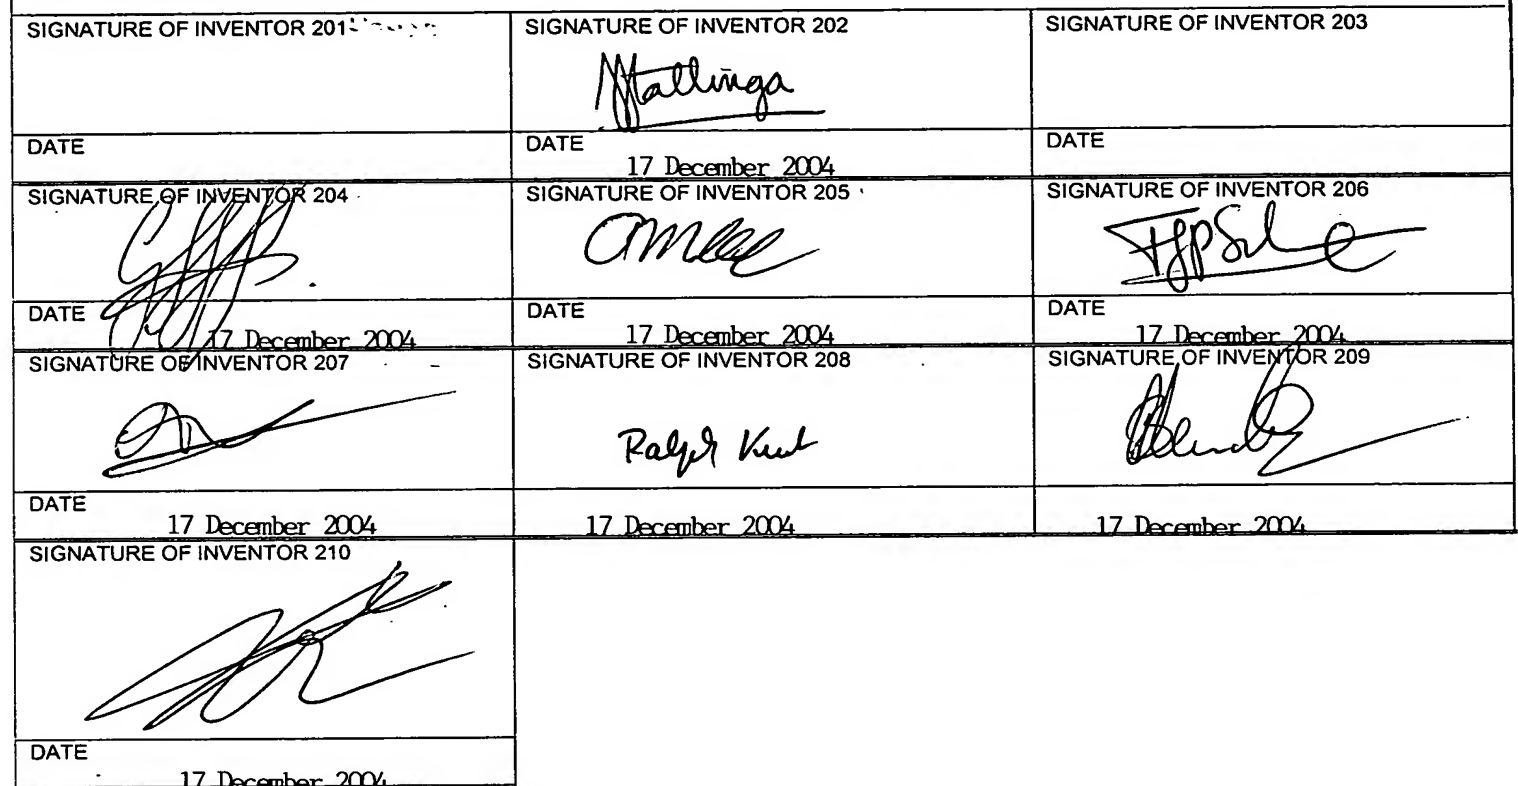 SIGNATURE OF INVENTOR 201
SIGNATURE OF INVENTOR 202
SIGNATURE OF INVENTOR 203
Stallinga
DATE
DATE
17 December 2004
DATE
SIGNATURE OF INVENTOR 204
SIGNATURE OF INVENTOR 205
SIGNATURE OF INVENTOR 206
DATE
17 December 2004
DATE
17 December 2004
DATE
17 December 2004
SIGNATURE OF INVENTOR 207
SIGNATURE OF INVENTOR 208
SIGNATURE OF INVENTOR 209
Ralph Kurt
DATE
17 December 2004
17 December 2004
17 December 2004
SIGNATURE OF INVENTOR 210
DATE
17 December 2004